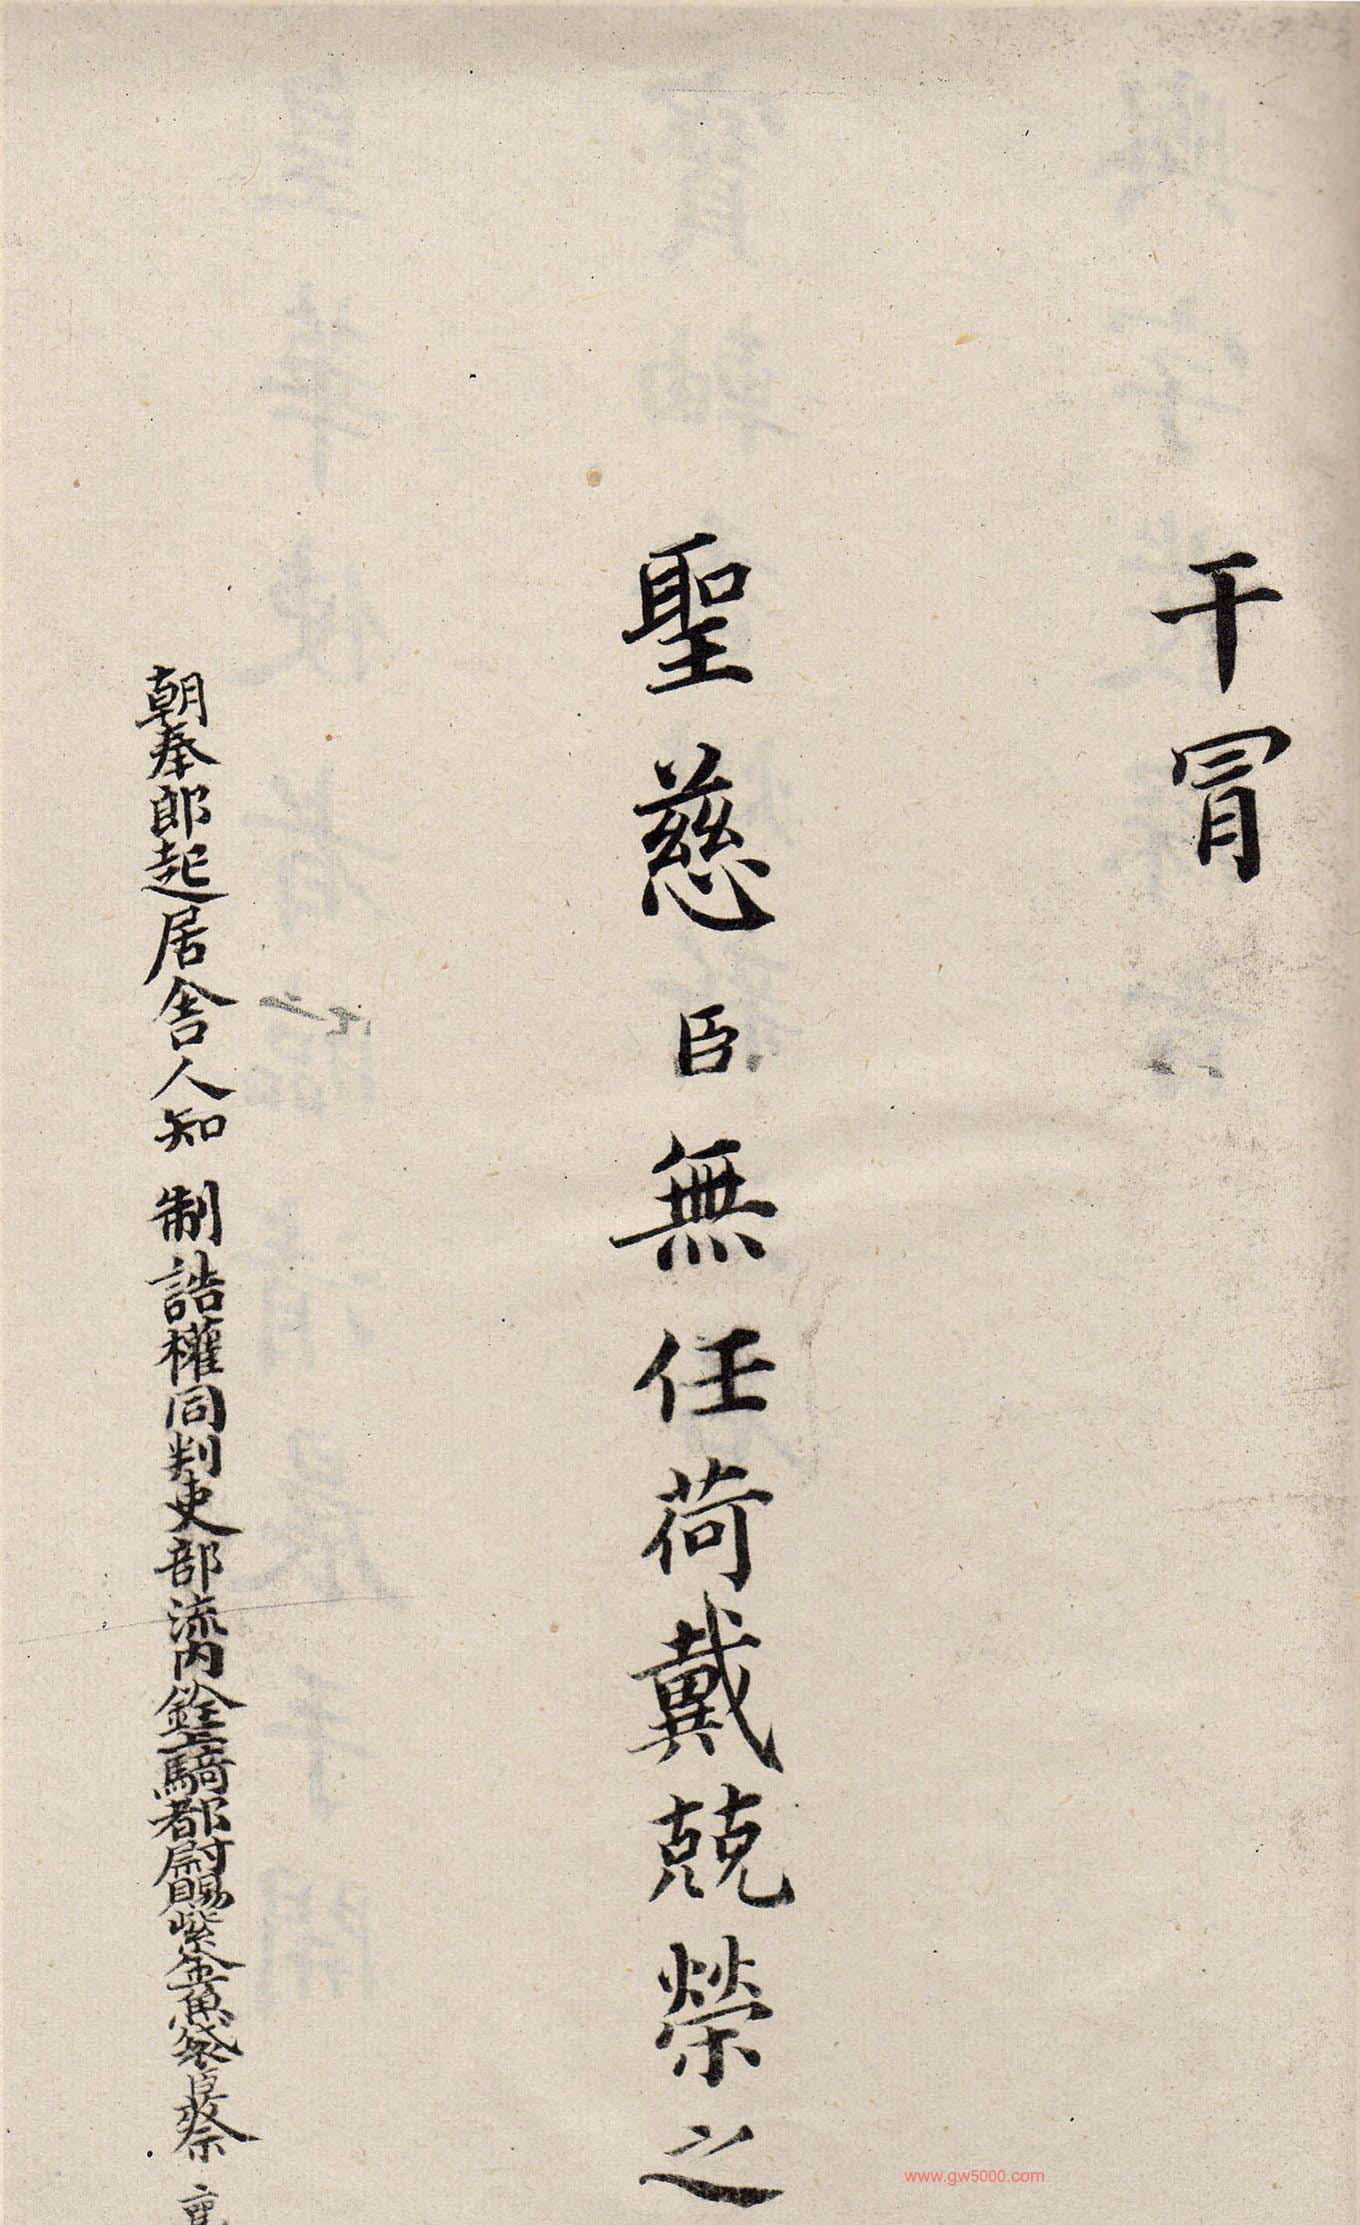 干冐
聖慈臣無任荷戴兢榮之
朝奉郎起居舍人知 制誥權同判吏部流内銓上騎都尉賜紫金魚袋臣蔡
www.gw5000.com